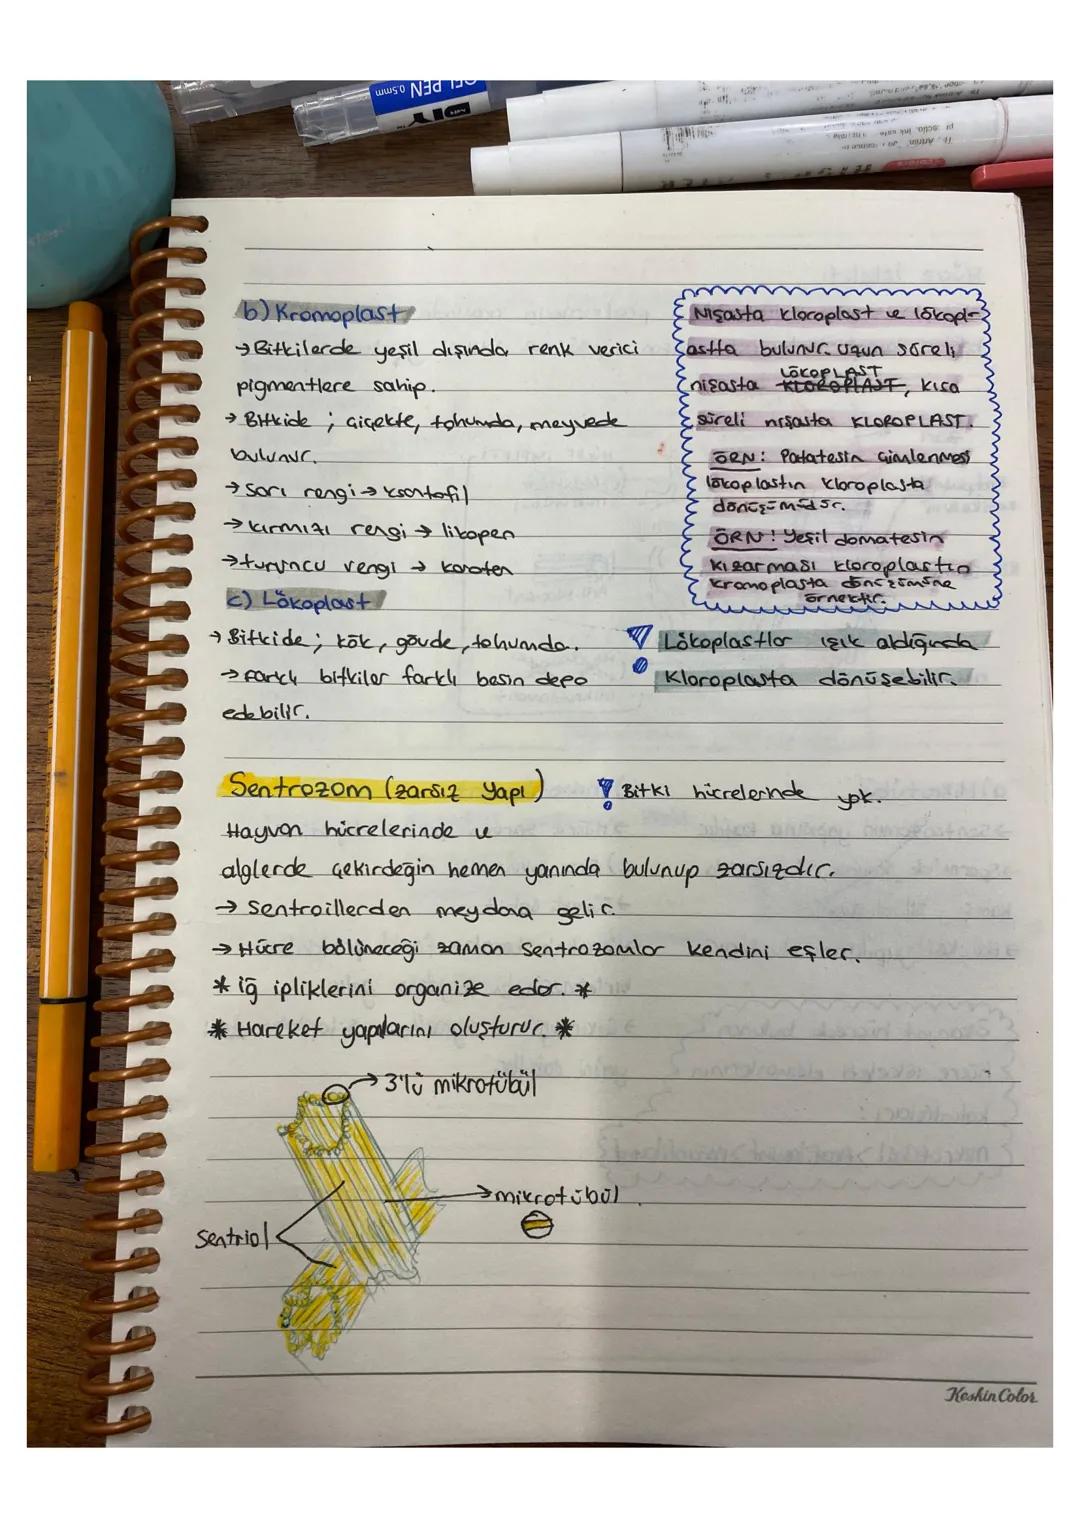 GEL PEN 0.5mm
b) Kromoplast
→ Bitkilerde yeşil dışında renk verici
pigmentlere sahip.
→ Bitkide ; çiçekte, tohumda, meyvede
bulunur.
→ Sarı rengi → ksantofil
→ kırmızı rengi → likopen
→ turuncu rengi → karoten
c) Lökoplast
→ Bitkide ; kök, gövde, tohumda.
→ farklı bitkiler farklı besin depo
edebilir.
Nişasta kloroplast ve lökopl-
astta bulunur. Uzun süreli
LÖKOPLAST
nişasta KLOROPLAST, kısa
süreli nişasta KLOROPLAST.
ÖRN: Patatesin çimlenmesi
lökoplastın kloroplasta
dönüşümüdür.
ÖRN: Yeşil domatesin
kızarması kloroplastın
kromoplasta dönüşümüne
örnektir.
! Lökoplastlar ışık aldığında
Kloroplasta dönüşebilir.
Sentrozom (zarsız yapı)
! Bitki hücrelerinde yok.
Hayvan hücrelerinde ve
alglerde çekirdeğin hemen yanında bulunup zarsızdır.
→ Sentroillerden meydana gelir.
→ Hücre bölüneceği zaman sentrozomlar kendini eşler.
* iğ ipliklerini organize eder. *
* Hareket yapılarını oluşturur. *
→ 3'lü mikrotübül
→ mikrotübül
Sentriol
Keskin Color